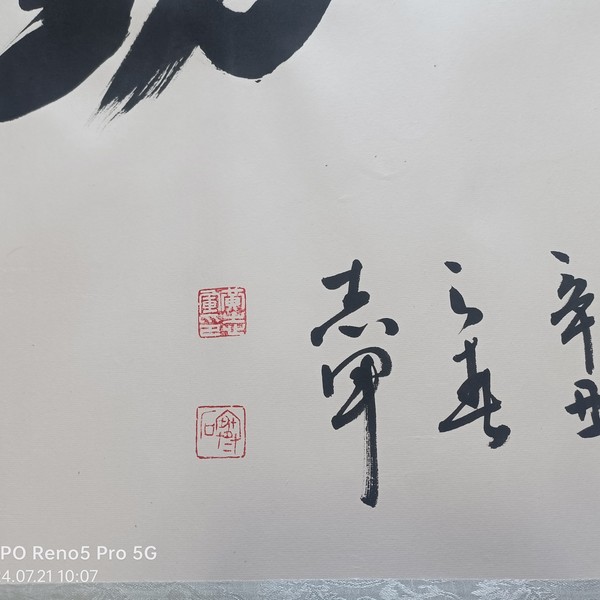 辛丑
之春
志军
PO Reno5 Pro 5G
4.07.21 10:07